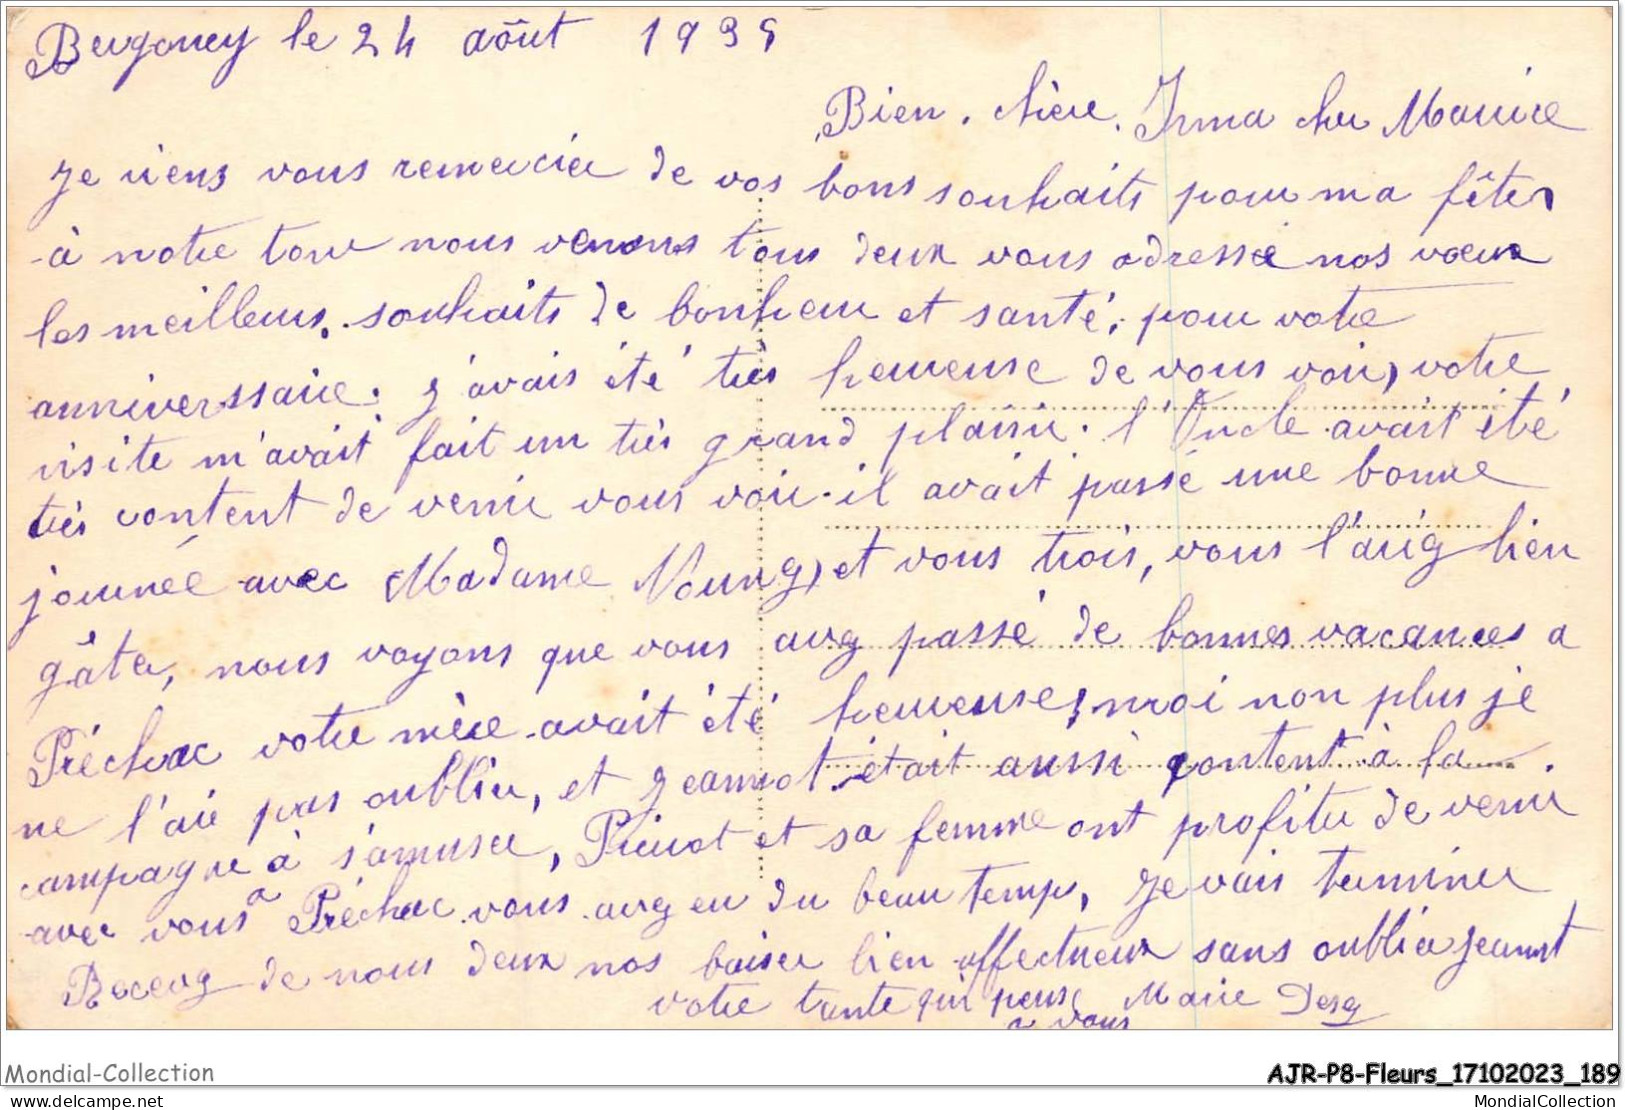 Bugoney le 24 août 1935
Bien. chère. Irma cher Maurice
je viens vous remercier de vos bons souhaits pour ma fête,
à notre tour nous venons tous deux vous adresser nos vœux
les meilleurs. souhaits de bonheur et santé, pour votre
anniverssaire. j'avais été très heureuse de vous voir, votre
visite m'avait fait un très grand plaisir. l'Oncle avait été
très content de venir vous voir. il avait passé une bonne
journée avec Madame Noung, et vous trois, vous l'avig bien
gâter, nous voyons que vous avez passé de bonnes vacances a
Préchac votre mère avait été heureuse, moi non plus je
ne l'aie pas oublier, et jeannot était aussi content à la
campagne à s'amuser, Pierrot et sa femme ont profiter de venir
avec vous a Préchac vous avez eu du beau temp, je vais terminer
Recevez de nous deux nos baiser bien affectueux sans oublier jeannot
votre tante qui pense Marie
a vous
Mondial-Collection
AJR-P8-Fleurs_17102023_189
www.delcampe.net
MondialCollection